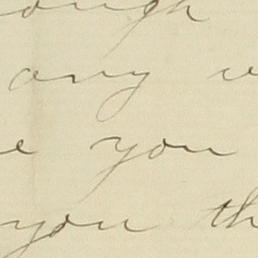 ough
any
e you
you th